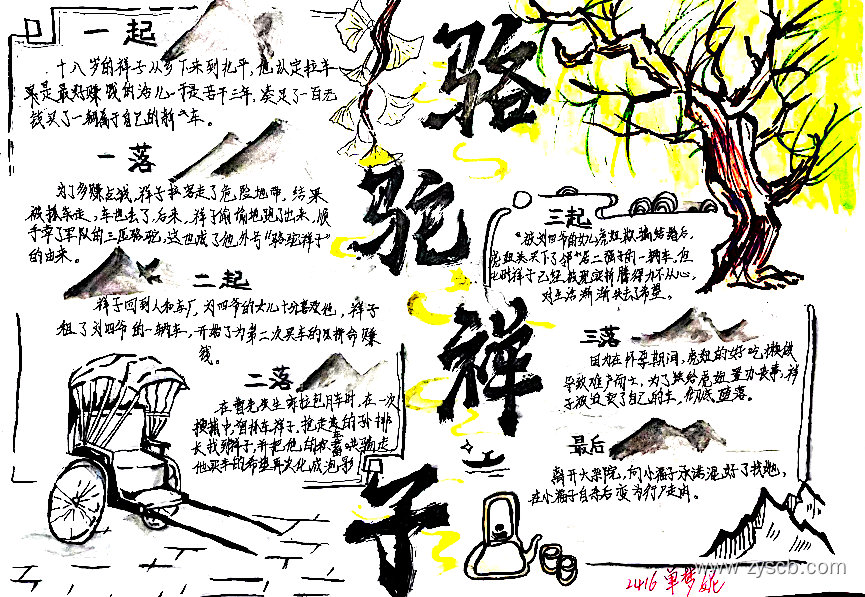 骆驼祥子
一起
十八岁的祥子从乡下来到北平,他认定拉车
果是最好赚钱的活儿于是苦干三年,凑足了一百元
钱买了一辆属于自己的新车。
一落
为了多赚点钱,祥子拉客走了危险地带,结果
被抓车走,车也去了,后来,祥子偷偷地跑了出来,顺
手牵了军队的三匹骆驼,这也成了他外号"骆驼祥子"
的由来。
二起
祥子回到人和车厂,刘四爷的女儿十分喜欢他,祥子
租了刘四爷的一辆车,开始了为第二次买车的及拼命赚
钱。
二落
在曹先生家拉包月车时,在一次
搜捕中
祥子,并把他的
他买车的希望再次化成泡影
三起
被刘四爷的女儿
虎妞 买下了邻居二强子的一辆车,但
此时祥子已经 力不从心,
对生活渐渐失去了希望。
三落
因为在怀孕期间,虎妞的好吃懒做
导致难产而亡,为了给虎妞置办丧事,祥
子被迫卖了自己的车,彻底堕落。
最后
离开大杂院,向小福子承诺混好了找她,
在小福子自杀后变为行尸走肉。
2416 单梦妮
www.zyscb.com